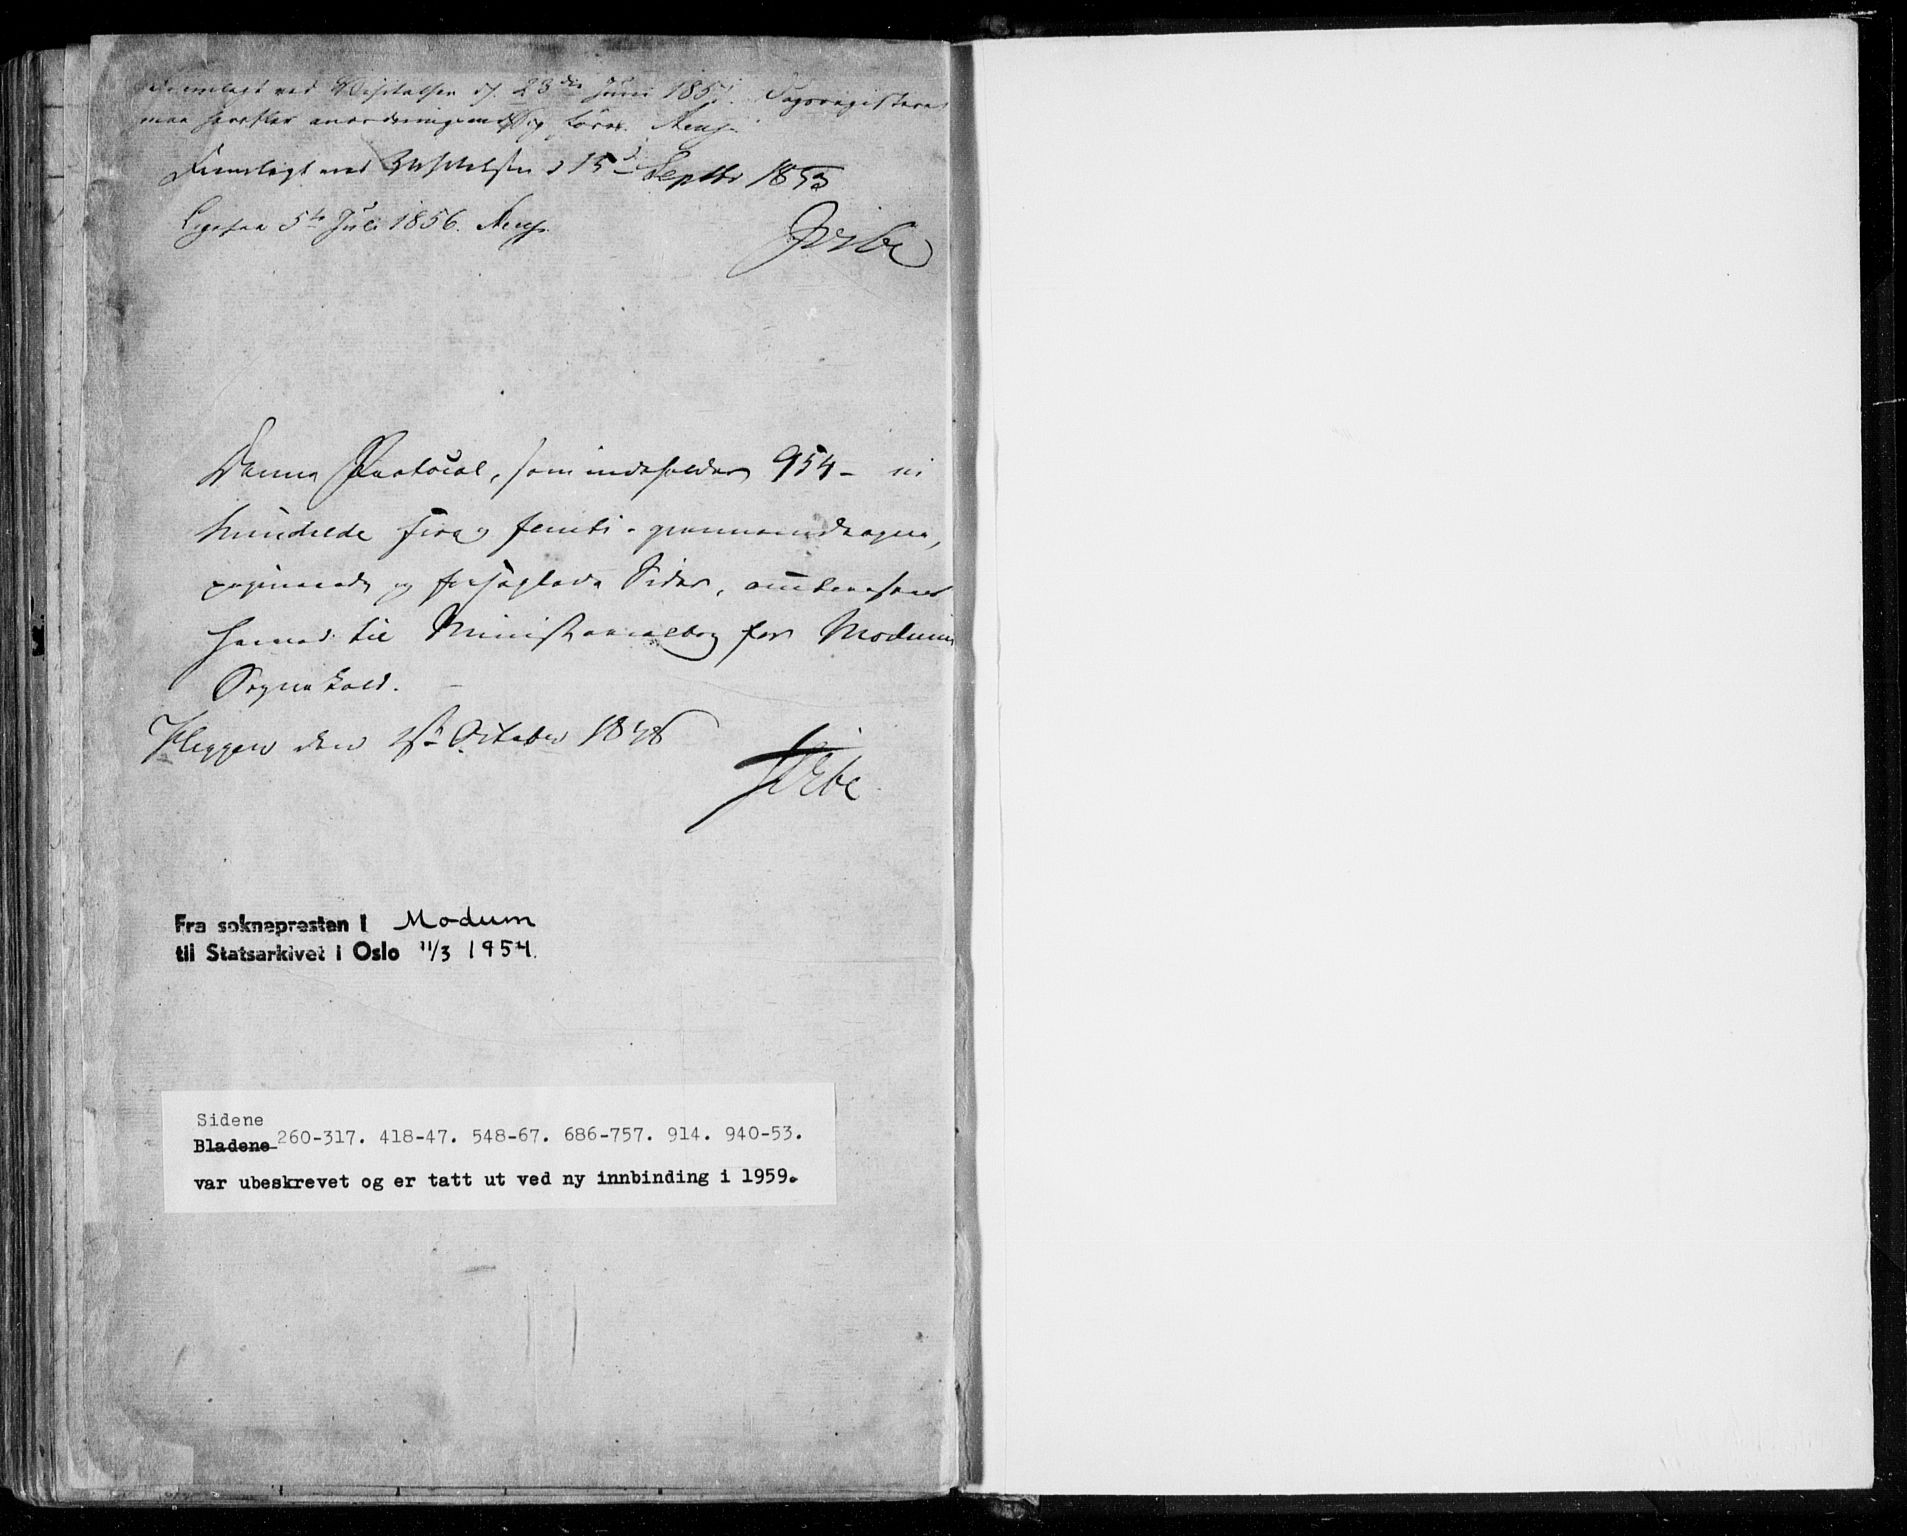 Fremlagt ved Visitatsen d. 23de Juni 1851. Dagsregisteret
maa herefter anordningsmessig føres. Arup
Fremlagt ved Visitatsen d 15d Septbr 1853
Ligesaa 5te Juli 1856. Arup.
Denne Protocol, som indeholder 954 - ni
hundrede fire og femti - gjennemdragne,
paginerede og forseglede Sider, autoriseres
herved til Ministerialbog for Modums
Sognekald.
Heggen den 1ste October 1848
Fra soknepresten i Modum
til Statsarkivet i Oslo 11/3 1954.
Sidene
Bladene 260-317. 418-47. 548-67. 686-757. 914. 940-53.
var ubeskrevet og er tatt ut ved ny innbinding i 1959.